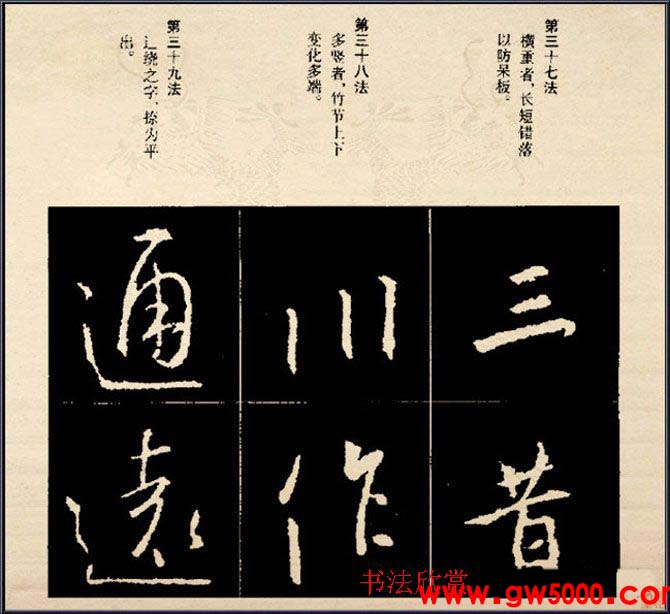 第三十七法
横重者，长短错落
以防呆板。
第三十八法
多竖者，竹节上下
变化多端。
第三十九法
辶绕之字，捺为平
出。
三
昔
川
作
通
遠
书法欣赏
www.gw5000.com